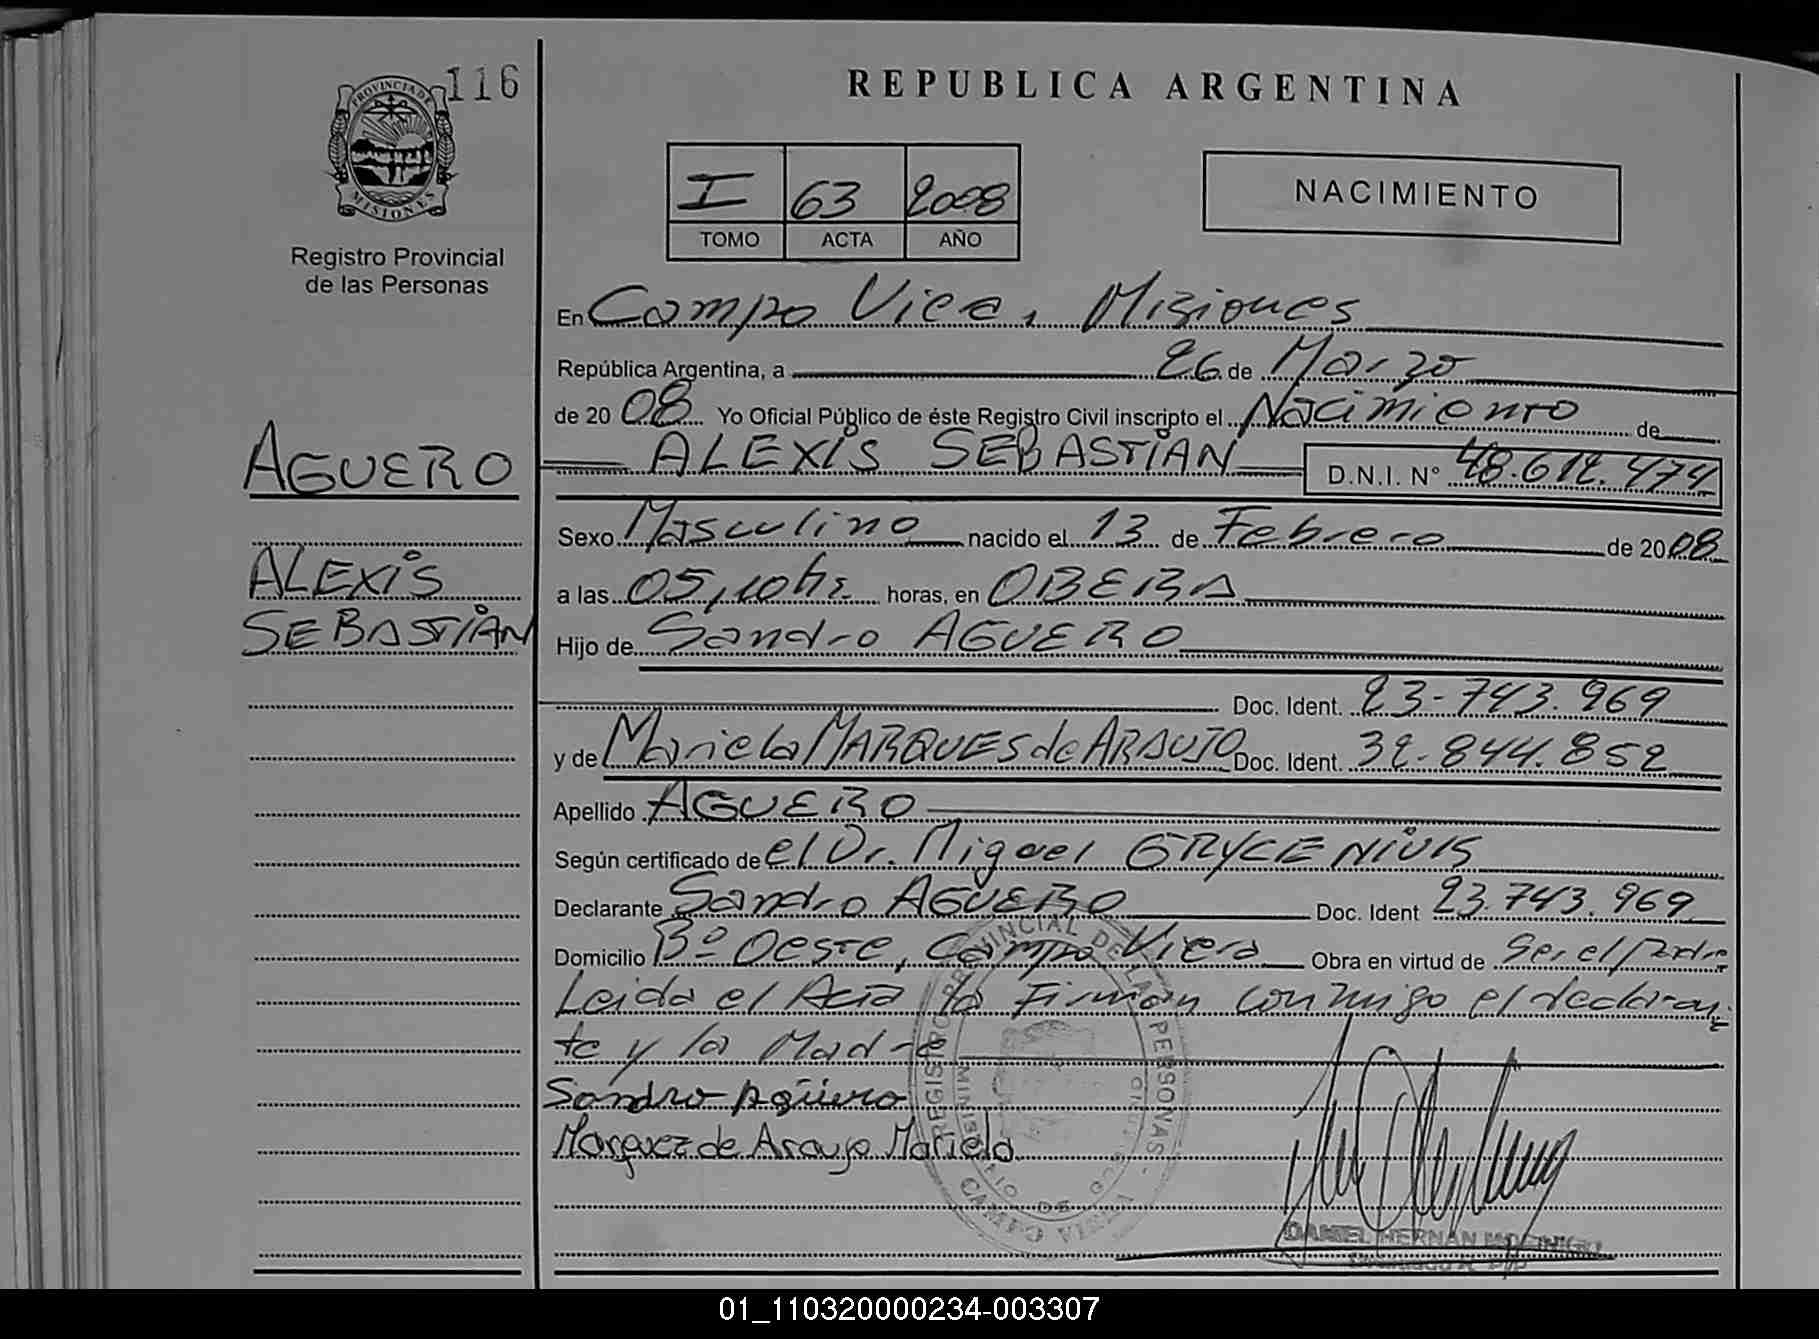 116
REPUBLICA ARGENTINA
PROVINCIA DE MISIONES
Registro Provincial
de las Personas
I 63 2008
TOMO ACTA AÑO
NACIMIENTO
En Campo Viera, Misiones
República Argentina, a 26 de Marzo
de 2008 Yo Oficial Público de éste Registro Civil inscripto el Nacimiento de
AGUERO
ALEXIS SEBASTIAN D.N.I. N° 48.612.474
Sexo Masculino nacido el 13 de Febrero de 2008
ALEXIS
a las 05,10hs. horas, en OBERA
SEBASTIAN
Hijo de Sandro AGUERO
Doc. Ident. 23-743.969
y de Mariela MARQUES de ARAUJO Doc. Ident. 32-844.852
Apellido AGUERO
Según certificado de el Dr. Miguel GRYCENIUK
Declarante Sandro AGUERO Doc. Ident 23.743.969
Domicilio Bº Oeste, Campo Viera Obra en virtud de Ser el padre
Leida el Acta la Firman conmigo el declaran-
te y la Madre
Sandro Agüero
Marquez de Araujo Mariela
REGISTRO PROVINCIAL DE LAS PERSONAS - MINISTERIO DE GOBIERNO
CAMPO VIERA
DANIEL HERNAN
01_110320000234-003307